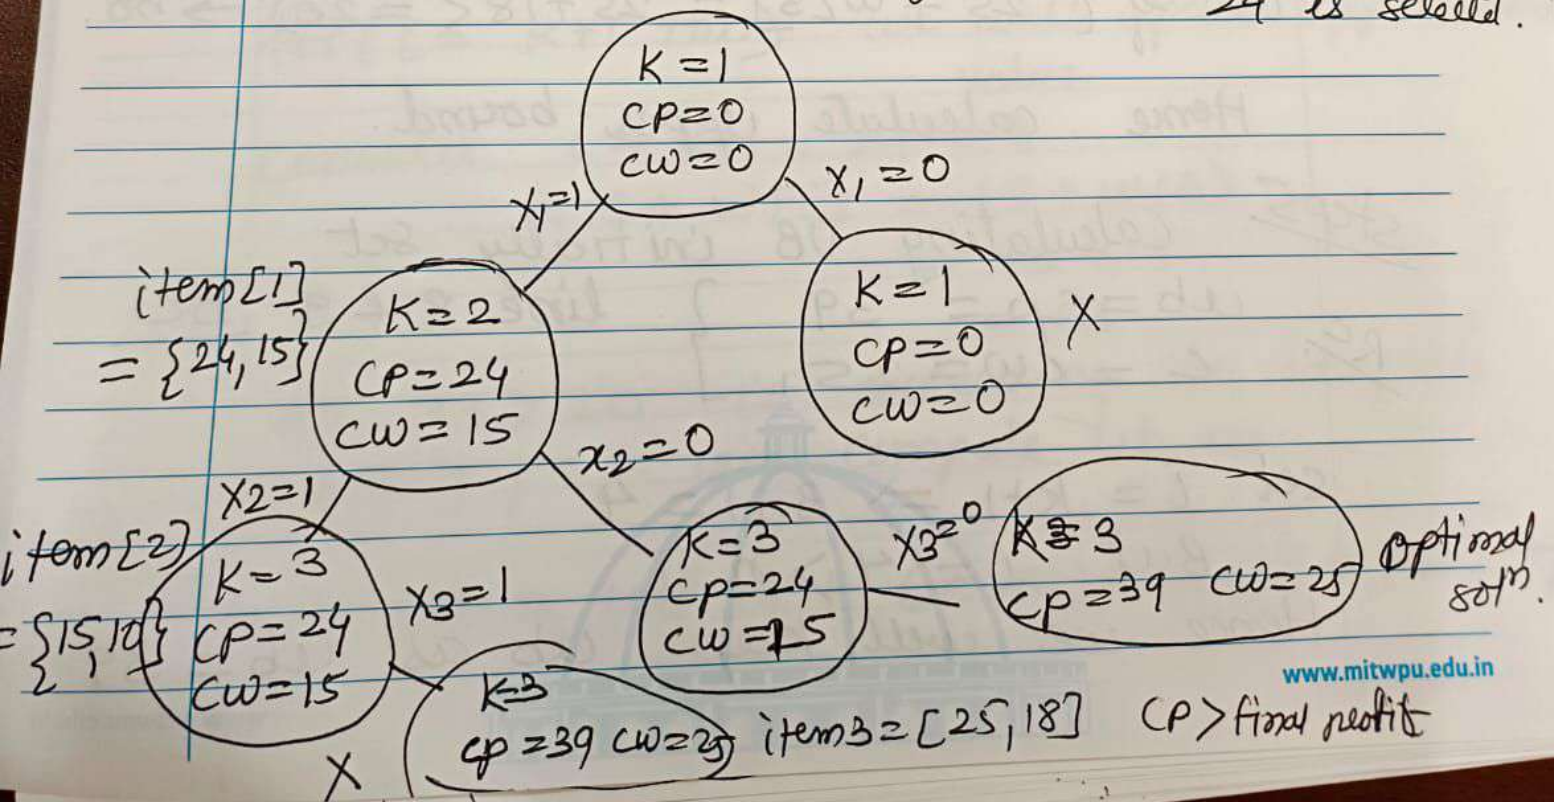 24 is selected.
K=1
CP=0
CW=0
X1=1
X1=0
item[1]
= {24,15}
K=2
CP=24
CW=15
K=1
CP=0
CW=0
X
X2=1
x2=0
item[2]
= {15,10}
K=3
CP=24
CW=15
X3=1
K=3
CP=24
CW=15
X3=0
K=3
CP=39 CW=25
optimal
soln.
www.mitwpu.edu.in
X
K=3
CP=39 CW=25
item3=[25,18]
CP>final profit